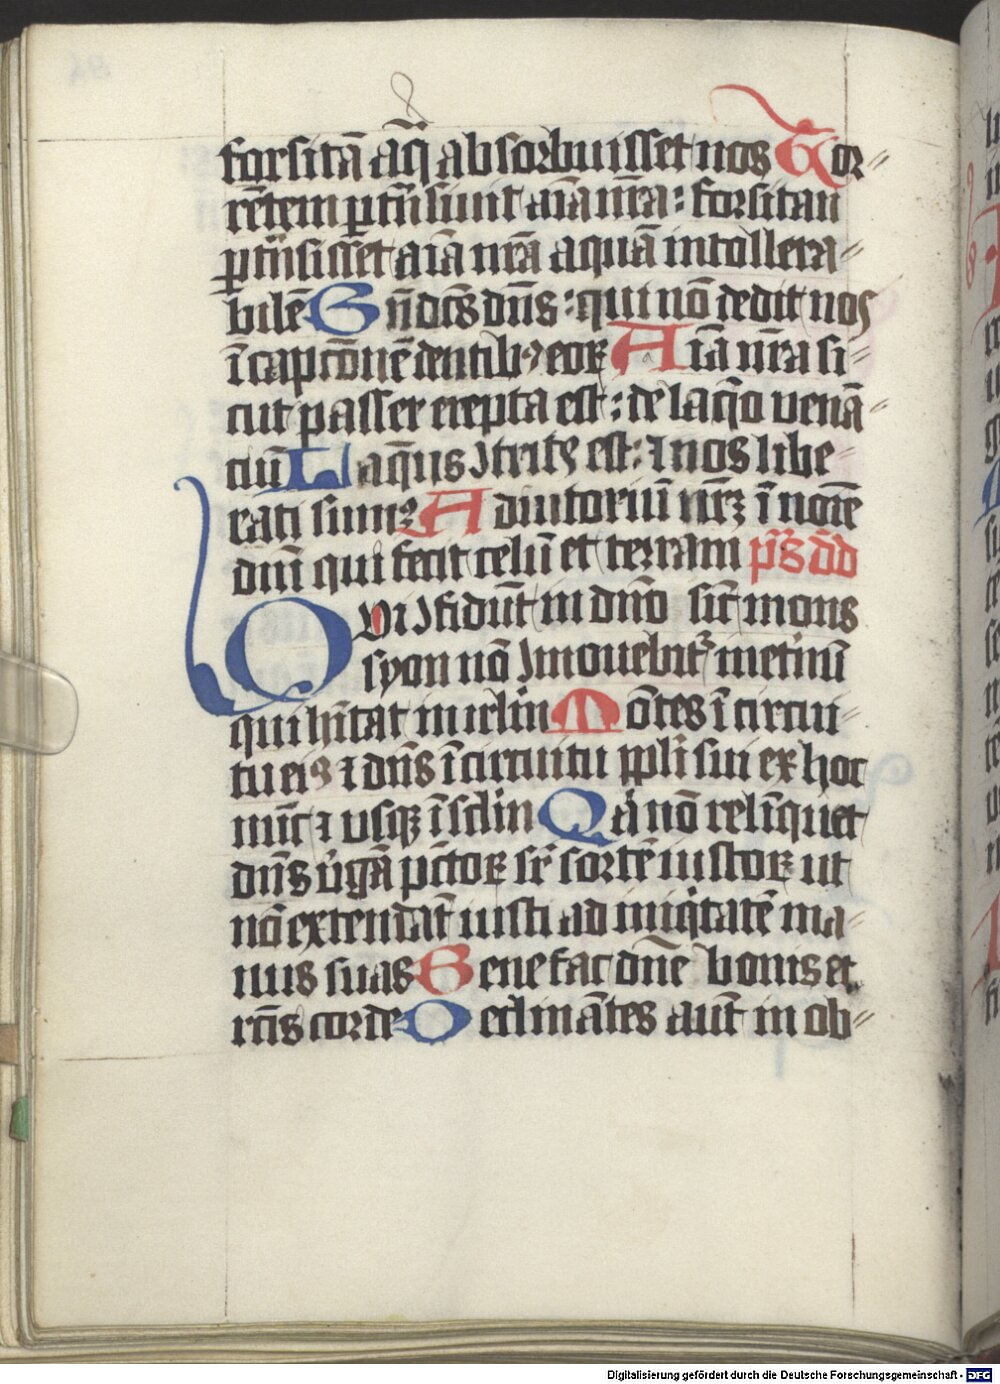 forsitā aq̄ absorbuisset nos Tor⸗
rētem ꝑtn̄siuit aīa nr̄a : forsitan
ꝑtn̄sisset aīa nr̄a aquā intollera⸗
bilē Bn̄dc̄s dn̄s : qui nō dedit nos
ī capcōnē dentibꝫ eoꝝ Aīa nr̄a si⸗
cut passer erepta est : de laq̄o venā⸗
ciū Laq̄us ↄtritꝰ est : ⁊ nos libe⸗
rati sumꝰ Adiutoriū nr̄ꝫ ī noīe
dn̄i qui fecit celū et terram ps̄ dd̄
QVi ↄfidūt in dn̄o sic̄ mons
syon nō ↄmouebit᷑ īnet̄nū
qui hītat in irlm̄ Mōtes ī circui⸗
tu eiꝰ ⁊ dn̄s ī circuitu ppl̄i sui ex hoc
nūc ⁊ usqꝫ ī sc̄lm̄ Qꝛ nō relīquet
dn̄s v̓gā pc̄toꝝ sr̄ sortē iustoꝝ ut
nō extendāt iusti ad iniq̄tatē ma⸗
nus suas Benefac dn̄e bonis et
rc̄is corde Declinātes aut̄ in ob⸗
Digitalisierung gefördert durch die Deutsche Forschungsgemeinschaft - DFG